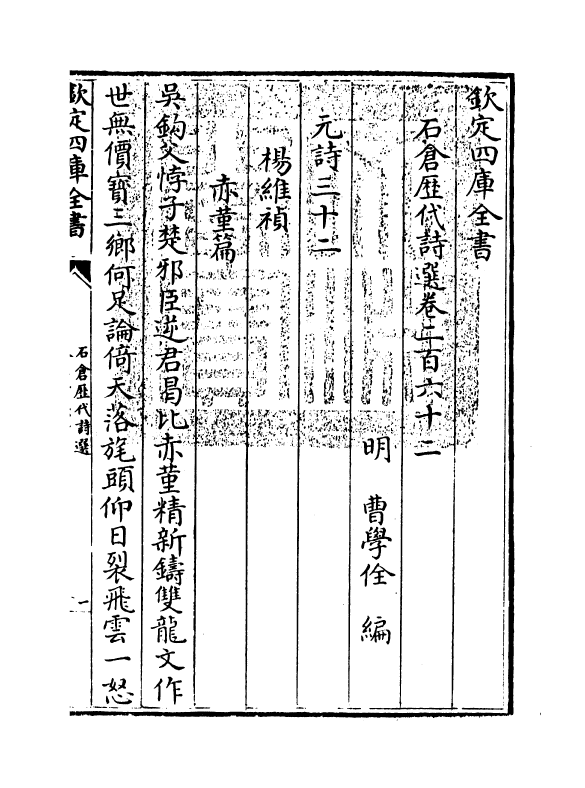 欽定四庫全書
石倉歴代詩選卷二百六十二
明 曹學佺 編
元詩三十二
楊維禎
赤堇篇
吳鈎父悖子楚邪臣逆君曷比赤堇精新鑄雙龍文作
世無價寳三鄉何足論倚天落旄頭仰日裂飛雲一怒
欽定四庫全書
石倉歴代詩選
一